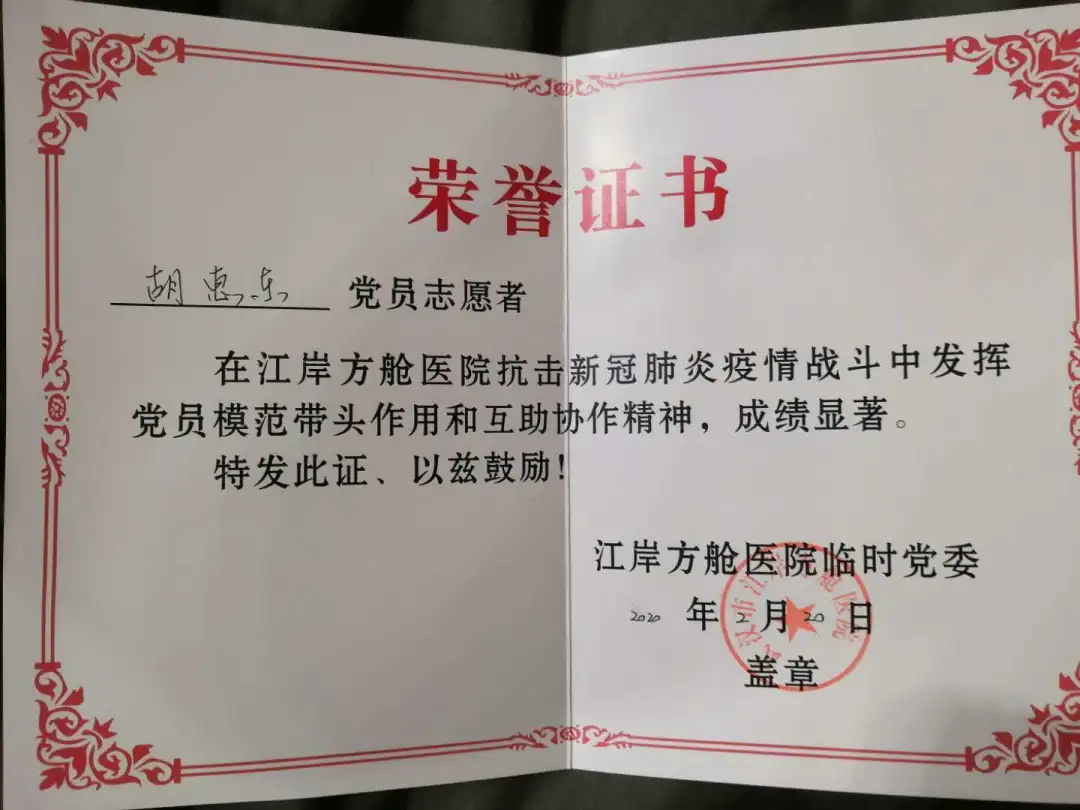 荣誉证书
胡惠东 党员志愿者
在江岸方舱医院抗击新冠肺炎疫情战斗中发挥
党员模范带头作用和互助协作精神，成绩显著。
特发此证、以兹鼓励！
江岸方舱医院临时党委
2020 年 2 月 20 日
盖章
武汉市江岸方舱医院